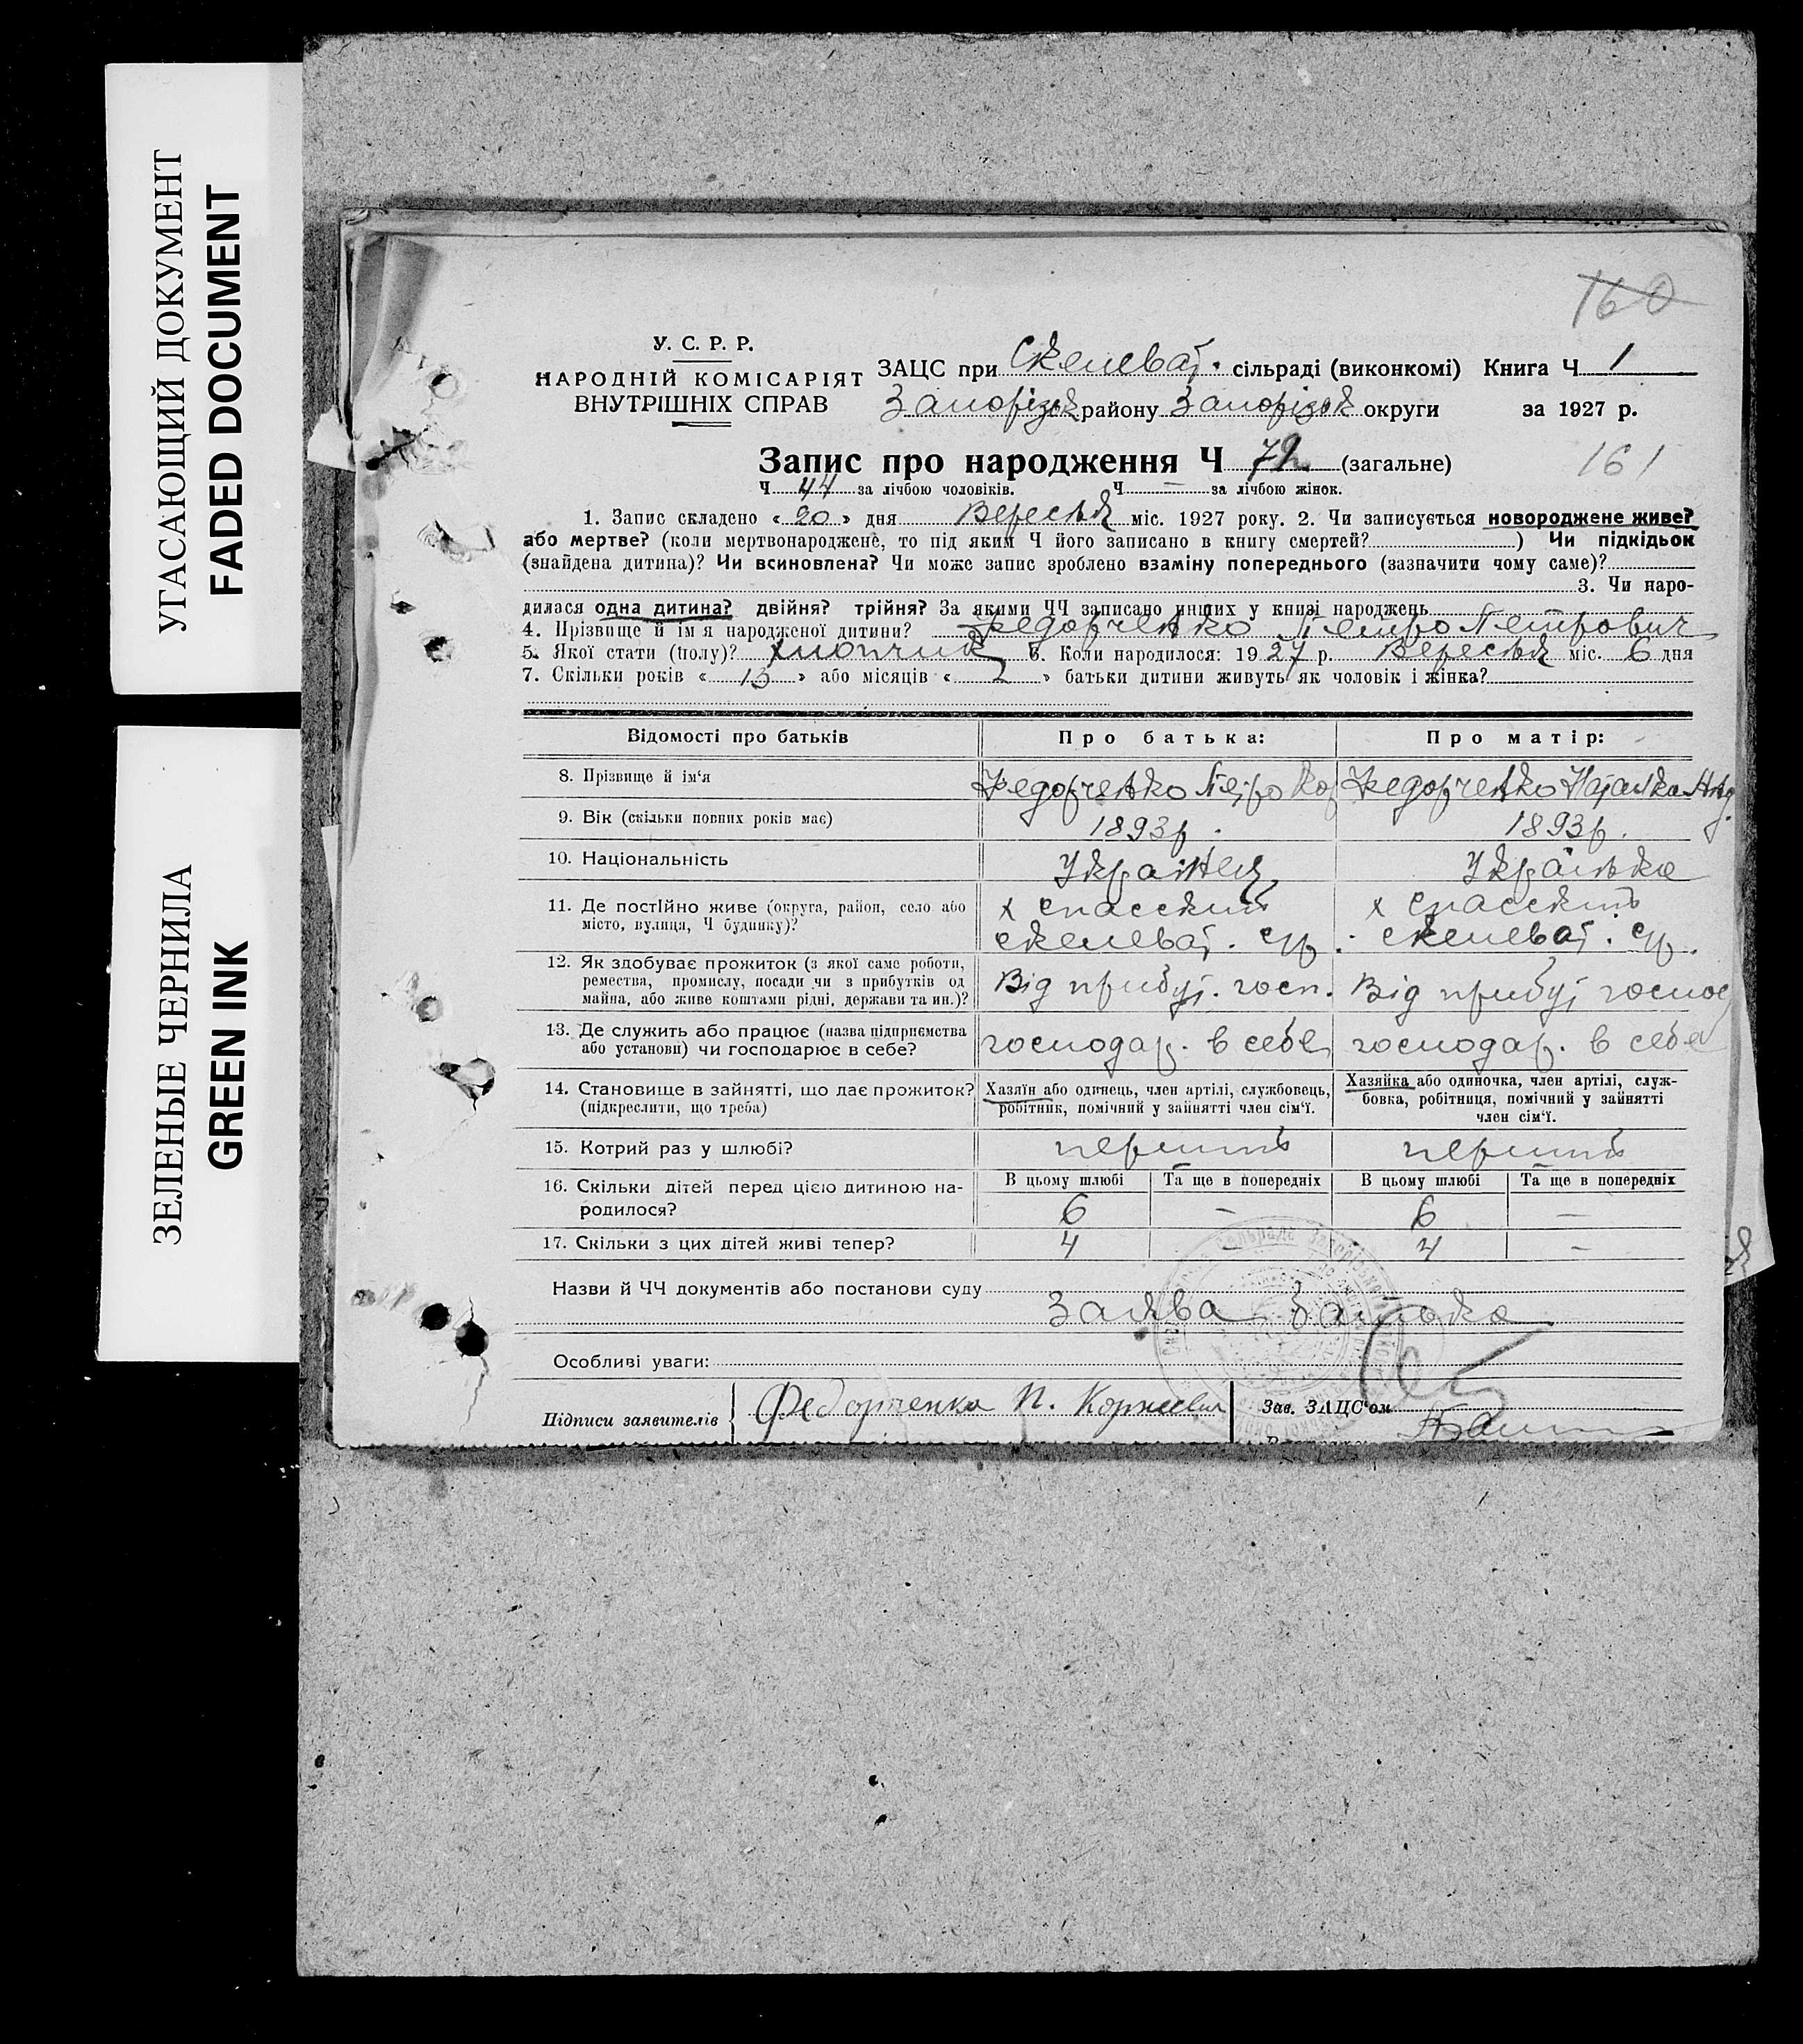 УГАСАЮЩИЙ ДОКУМЕНТ
FADED DOCUMENT
ЗЕЛЕНЫЕ ЧЕРНИЛА
GREEN INK
160
У. С. Р. Р.
НАРОДНІЙ КОМІСАРІЯТ
ВНУТРІШНІХ СПРАВ
ЗАЦС при Скелеват. сільраді (виконкомі) Книга Ч 1
Запорізьк району Запорізьк округи за 1927 р.
Запис про народження Ч 72 (загальне)
161
Ч 44 за лічбою чоловіків. Ч — за лічбою жінок.
1. Запис складено « 20 » дня Вересня міс. 1927 року. 2. Чи записується новороджене живе?
або мертве? (коли мертвонароджене, то під яким Ч його записано в книгу смертей? ) Чи підкідьок
(знайдена дитина)? Чи всиновлена? Чи може запис зроблено взаміну попереднього (зазначити чому саме)?
3. Чи наро-
дилася одна дитина? двійня? трійня? За якими ЧЧ записано инших у книзі народжень
4. Прізвище й ім'я народженої дитини? Федорченко Петро Петрович
5. Якої стати (полу)? хлопчик 6. Коли народилося: 19 27 р. Вересня міс. 6 дня
7. Скільки років « 13 » або місяців « 2 » батьки дитини живуть як чоловік і жінка?
Відомості про батьків
Про батька:
Про матір:
8. Прізвище й ім'я
Федорченко Петро Кор
Федорченко Наталка Анд.
9. Вік (скільки повних років має)
1893р.
1893р.
10. Національність
Українец
Українка
11. Де постійно живе (округа, район, село або
місто, вулиця, Ч будинку)?
х Спасский
Скелеват. с/р.
х Спасский
Скелеват. с/р.
12. Як здобуває прожиток (з якої саме роботи,
ремества, промислу, посади чи з прибутків од
майна, або живе коштами рідні, держави та ин.)?
Від прибут. госп.
Від прибут господ
13. Де служить або працює (назва підприємства
або установи) чи господарює в себе?
господар. в себе
господар. в себе
14. Становище в зайнятті, що дає прожиток?
(підкреслити, що треба)
Хазяїн або одинець, член артілі, службовець,
робітник, помічний у зайнятті член сім'ї.
Хазяйка або одиночка, член артілі, служ-
бовка, робітниця, помічний у зайнятті
член сім'ї.
15. Котрий раз у шлюбі?
перший
перший
16. Скільки дітей перед цією дитиною на-
родилося?
В цьому шлюбі
Та ще в попередніх
В цьому шлюбі
Та ще в попередніх
6
—
6
—
17. Скільки з цих дітей живі тепер?
4
4
—
Назви й ЧЧ документів або постанови суду
Заява Батька
Особливі уваги:
Підписи заявителів
Федорченка П. Корнеевич
Зав. ЗАЦС'ом